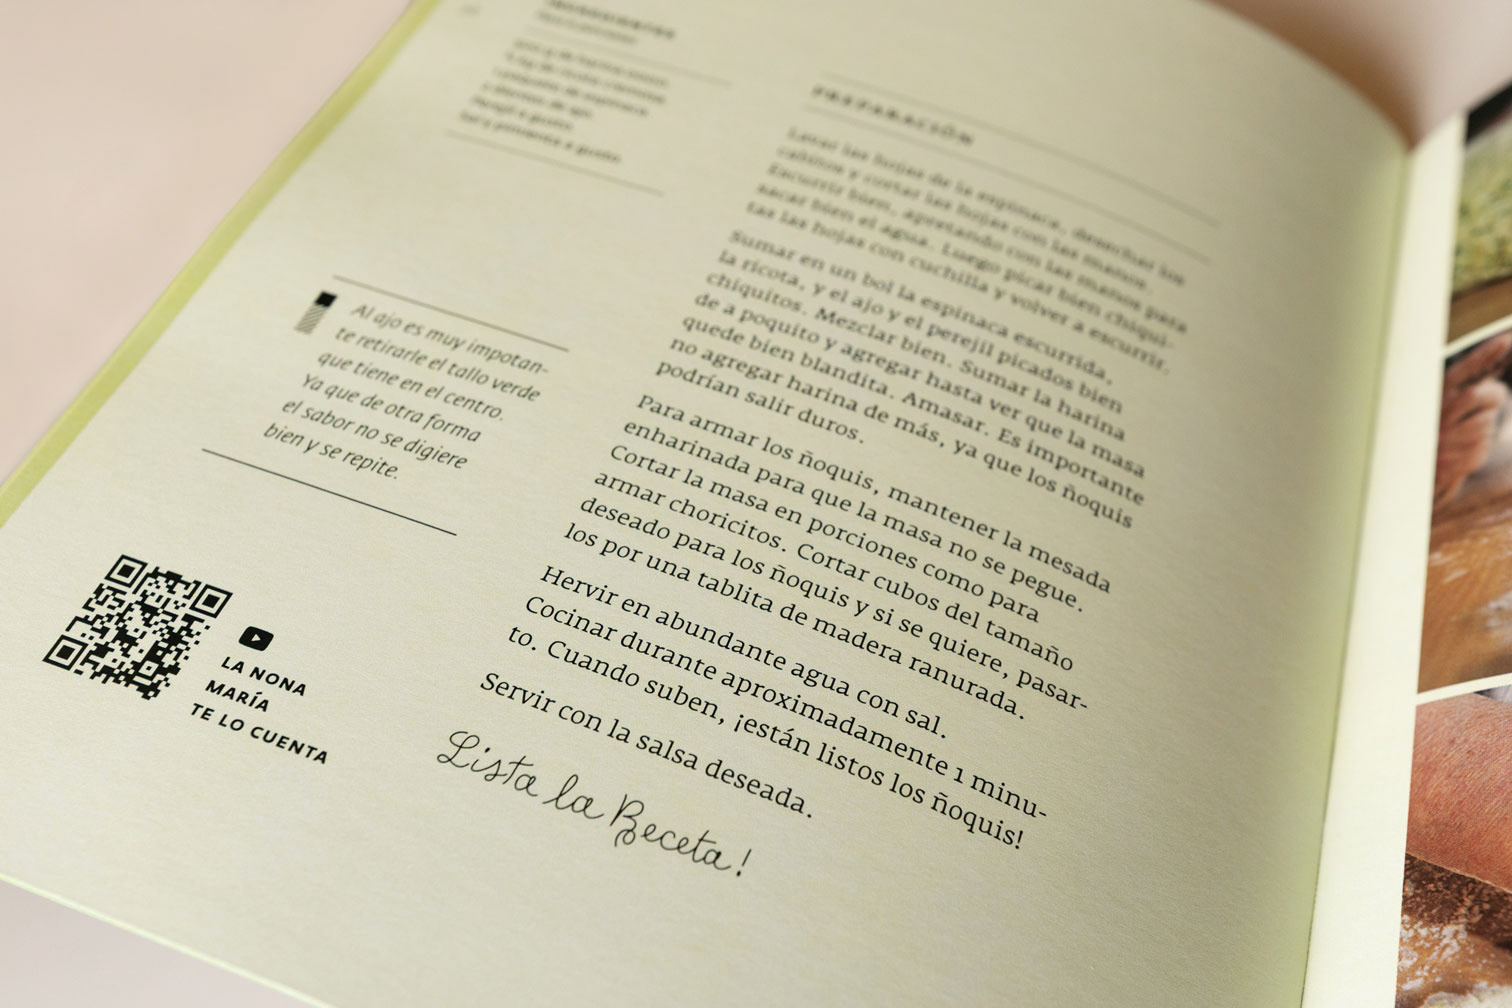 INGREDIENTES
1 kg de ricota cremosa
1 paquete de espinaca
2 dientes de ajo
Perejil a gusto
Sal y pimienta a gusto
PREPARACIÓN
Lavar las hojas de la espinaca, desechar los
cabitos y cortar las hojas con las manos.
Escurrir bien, apretando con las manos para
sacar bien el agua. Luego picar bien chiqui-
tas las hojas con cuchilla y volver a escurrir.
Sumar en un bol la espinaca escurrida,
la ricota, y el ajo y el perejil picados bien
chiquitos. Mezclar bien. Sumar la harina
de a poquito y agregar hasta ver que la masa
quede bien blandita. Amasar. Es importante
no agregar harina de más, ya que los ñoquis
podrían salir duros.
Para armar los ñoquis, mantener la mesada
enharinada para que la masa no se pegue.
Cortar la masa en porciones como para
armar choricitos. Cortar cubos del tamaño
deseado para los ñoquis y si se quiere, pasar-
los por una tablita de madera ranurada.
Hervir en abundante agua con sal.
Cocinar durante aproximadamente 1 minu-
to. Cuando suben, ¡están listos los ñoquis!
Servir con la salsa deseada.
Lista la Receta!
Al ajo es muy impotan-
te retirarle el tallo verde
que tiene en el centro.
Ya que de otra forma
el sabor no se digiere
bien y se repite.
LA NONA
MARÍA
TE LO CUENTA